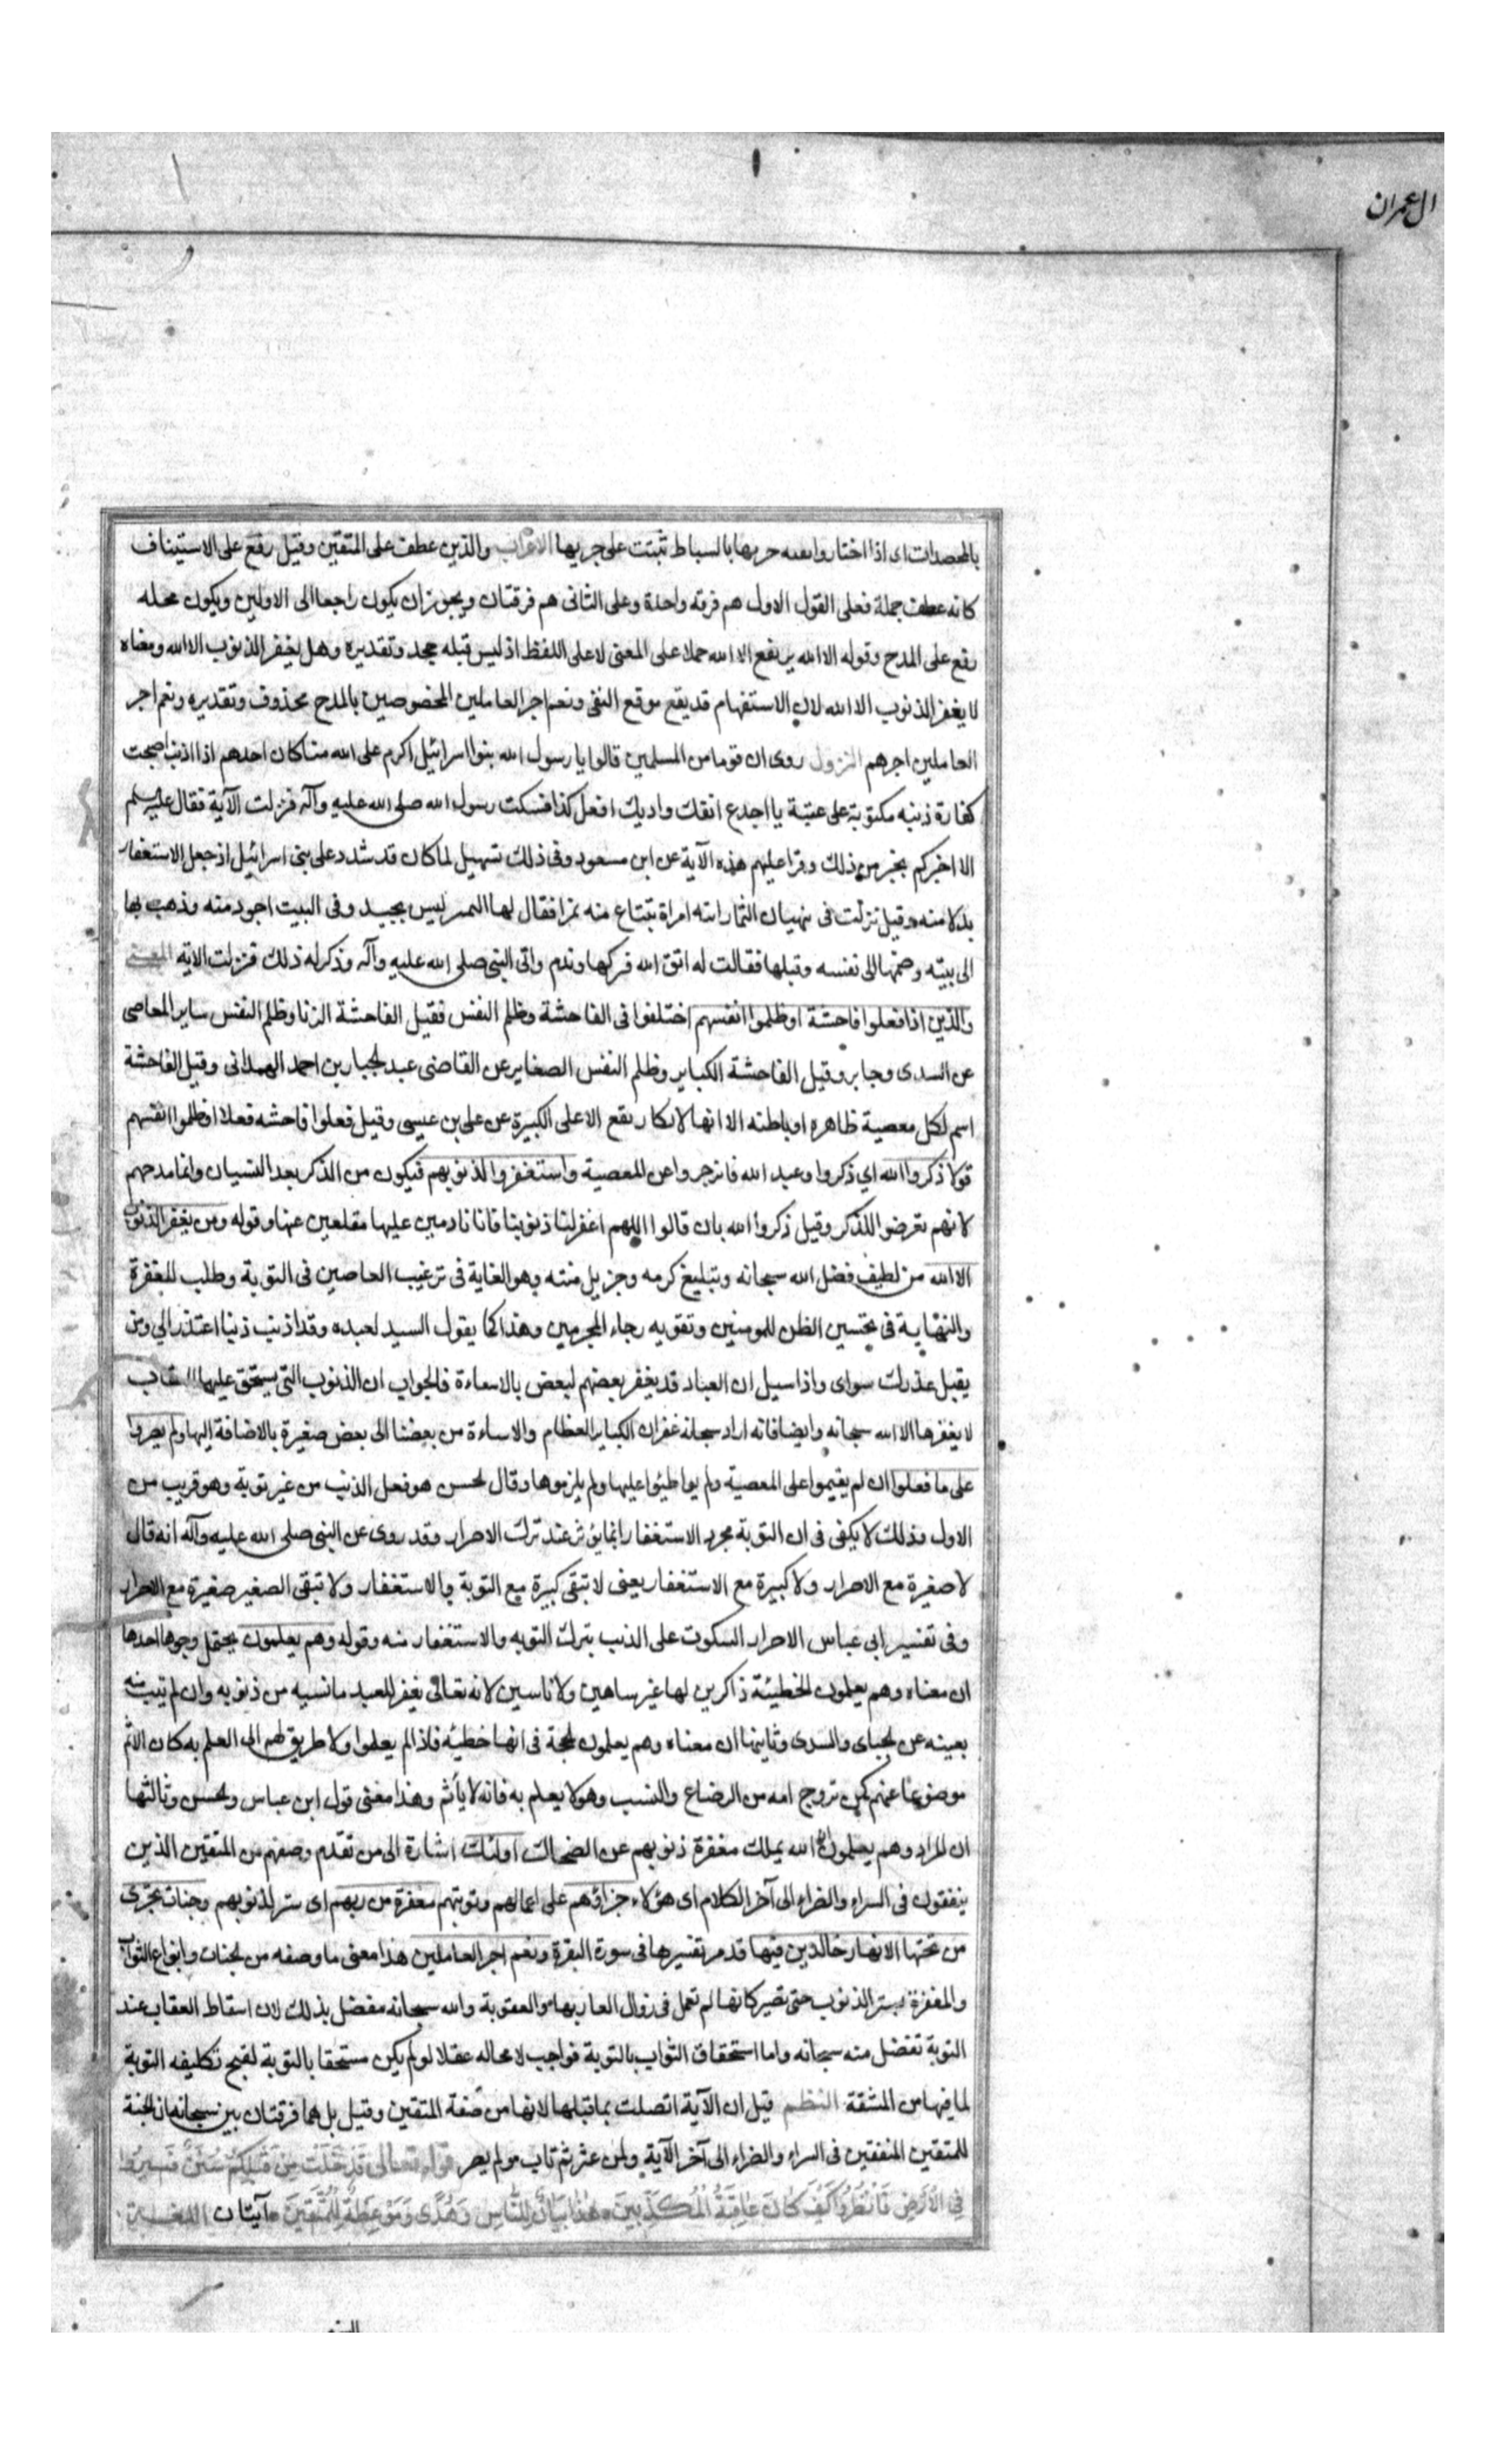 ال عمران
بالمحصدات اى اذا اختاروا بعده حربها بالسياط تثبتت على جريها الاعراب والذين عطف على المتقين وقيل رفع على الاستيناف
كانه عطف جملة فعلى القول الاول هم فرقه واحدة وعلى الثانى هم فرقتان ويجوز ان يكون راجعا الى الاولين ويكون محله
رفع على المدح وقوله الا الله يرتفع الا الله حملا على المعنى لا على اللفظ اذ ليس قبله جحد وتقديره وهل يغفر الذنوب الا الله ومعناه
لا يغفر الذنوب الا الله لان الاستفهام قد يقع موقع النفى ونعم اجر العاملين المخصوصين بالمدح محذوف وتقديره ونعم اجر
العاملين اجرهم النزول روى ان قوما من المسلمين قالوا يا رسول الله بنوا اسرائيل اكرم على الله منا كان احدهم اذا اذنب اصبحت
كفارة ذنبه مكتوبة على عتبة يا اجدع انفك واذنك افعل كذا فسكت رسول الله صلى الله عليه وآله فنزلت الآية فقال عليه السلم
الا اخبركم بخير من ذلك وقرا عليهم هذه الآية عن ابن مسعود وفى ذلك تسهيل لما كان قد شدد على بنى اسرائيل اذ جعل الاستغفار
بدلا منه وقيل نزلت فى نبهان التمار اتته امراة تبتاع منه تمرا فقال لها التمر ليس بجيد وفى البيت اجود منه وذهب بها
الى بيته وضمها الى نفسه وقبلها فقالت له اتق الله فركها وندم واتى النبى صلى الله عليه وآله وذكر له ذلك فنزلت الايه المعنى
والذين اذا فعلوا فاحشة او ظلموا انفسهم اختلفوا فى الفاحشة وظلم النفس فقيل الفاحشة الزنا وظلم النفس ساير المعاصى
عن السدى وجابر وقيل الفاحشة الكباير وظلم النفس الصغاير عن القاضى عبد الجبار بن احمد الهمدانى وقيل الفاحشة
اسم لكل معصية ظاهره او باطنه الا انها لا تكاد تقع الا على الكبيرة عن على بن عيسى وقيل فعلوا فاحشه فعلا او ظلموا انفسهم
قولا ذكروا الله اي ذكروا وعيد الله فانزجروا عن المعصية واستغفروا لذنوبهم فيكون من الذكر بعد النسيان وانما مدحهم
لانهم تعرضوا للذكر وقيل ذكروا الله بان قالوا اللهم اغفر لنا ذنوبنا فانا نادمين عليها مقلعين عنها وقوله ومن يغفر الذنوب
الا الله من لطيف فضل الله سبحانه وتبليغ كرمه وجزيل منته وهو الغاية فى ترغيب العاصين فى التوبة وطلب المغفرة
والنهاية فى تحسين الظن للمومنين وتقويه رجاء المجرمين وهذا كما يقول السيد لعبده وقد اذنب ذنبا اعتذر الي ومن
يقبل عذرك سواى واذا سيل ان العباد قد يغفر بعضهم لبعض بالاساءة فالجواب ان الذنوب التى يستحق عليها العقاب
لا يغفرها الا الله سبحانه وايضا فانه اراد سبحانه غفران الكباير العظام والاساءة من بعضنا الى بعض صغيرة بالاضافة اليها ولم يصروا
على ما فعلوا اى لم يقيموا على المعصية ولم يواظبوا عليها ولم يلزموها وقال الحسن هو فعل الذنب من غير توبة وهو قريب من
الاول وذلك لا يكفى فى ان التوبة مجرد الاستغفار انما يؤثر عند ترك الاصرار وقد روى عن النبى صلى الله عليه وآله انه قال
لا صغيرة مع الاصرار ولا كبيرة مع الاستغفار يعنى لا تبقى كبيرة مع التوبة والاستغفار ولا تبقى الصغير صغيرة مع الاصرار
وفى تفسير ابى عباس الاصرار السكوت على الذنب بترك التوبه والاستغفار منه وقوله وهم يعلمون يحتمل وجوها احدها
ان معناه وهم يعلمون الخطيئة ذاكرين لها غير ساهين ولا ناسين لانه تعالى يغفر للعبد ما نسيه من ذنوبه وان لم يتب منه
بعينه عن الجباى والسدى وثانيها ان معناه وهم يعلمون الحجة فى انها خطيئه فاذا لم يعلموا ولا طريق لهم الى العلم به كان الاثم
موضوعا عنهم كمن تزوج امه من الرضاع والنسب وهو لا يعلم به فانه لا يأثم وهذا معنى قول ابن عباس والحسن وثالثها
ان المراد وهم يعلمون ان الله يملك مغفرة ذنوبهم عن الضحاك اولئك اشارة الى من تقدم وصفهم من المتقين الذين
ينفقون فى السراء والضراء الى آخر الكلام اى هؤلاء جزاؤهم على اعمالهم وتوبتهم مغفرة من ربهم اى ستر لذنوبهم وجنات تجرى
من تحتها الانهار خالدين فيها قد مر تفسيرها فى سورة البقرة ونعم اجر العاملين هذا معنى ما وصفه من الجنات وانواع الثواب
والمغفرة بستر الذنوب حتى تصير كانها لم تعمل فى زوال العار بها والعقوبة والله سبحانه مفضل بذلك لان اسقاط العقاب عند
التوبة تفضل منه سبحانه واما استحقاق الثواب بالتوبة فواجب لا محاله عقلا لو لم يكن مستحقا بالتوبة لقبح تكليفه التوبة
لما فيها من المشقة النظم قيل ان الآية اتصلت بما قبلها لانها من صفة المتقين وقيل بل هما فرقتان بين سبحانه ان الجنة
للمتقين المنفقين فى السراء والضراء الى آخر الآية ولمن عثر ثم تاب ولم يصر قوله تعالى قَدْ خَلَتْ مِنْ قَبْلِكُمْ سُنَنٌ فَسِيرُوا
فِي الْأَرْضِ فَانْظُرُوا كَيْفَ كَانَ عَاقِبَةُ الْمُكَذِّبِينَ هٰذَا بَيَانٌ لِلنَّاسِ وَهُدًى وَمَوْعِظَةٌ لِلْمُتَّقِينَ آيتان